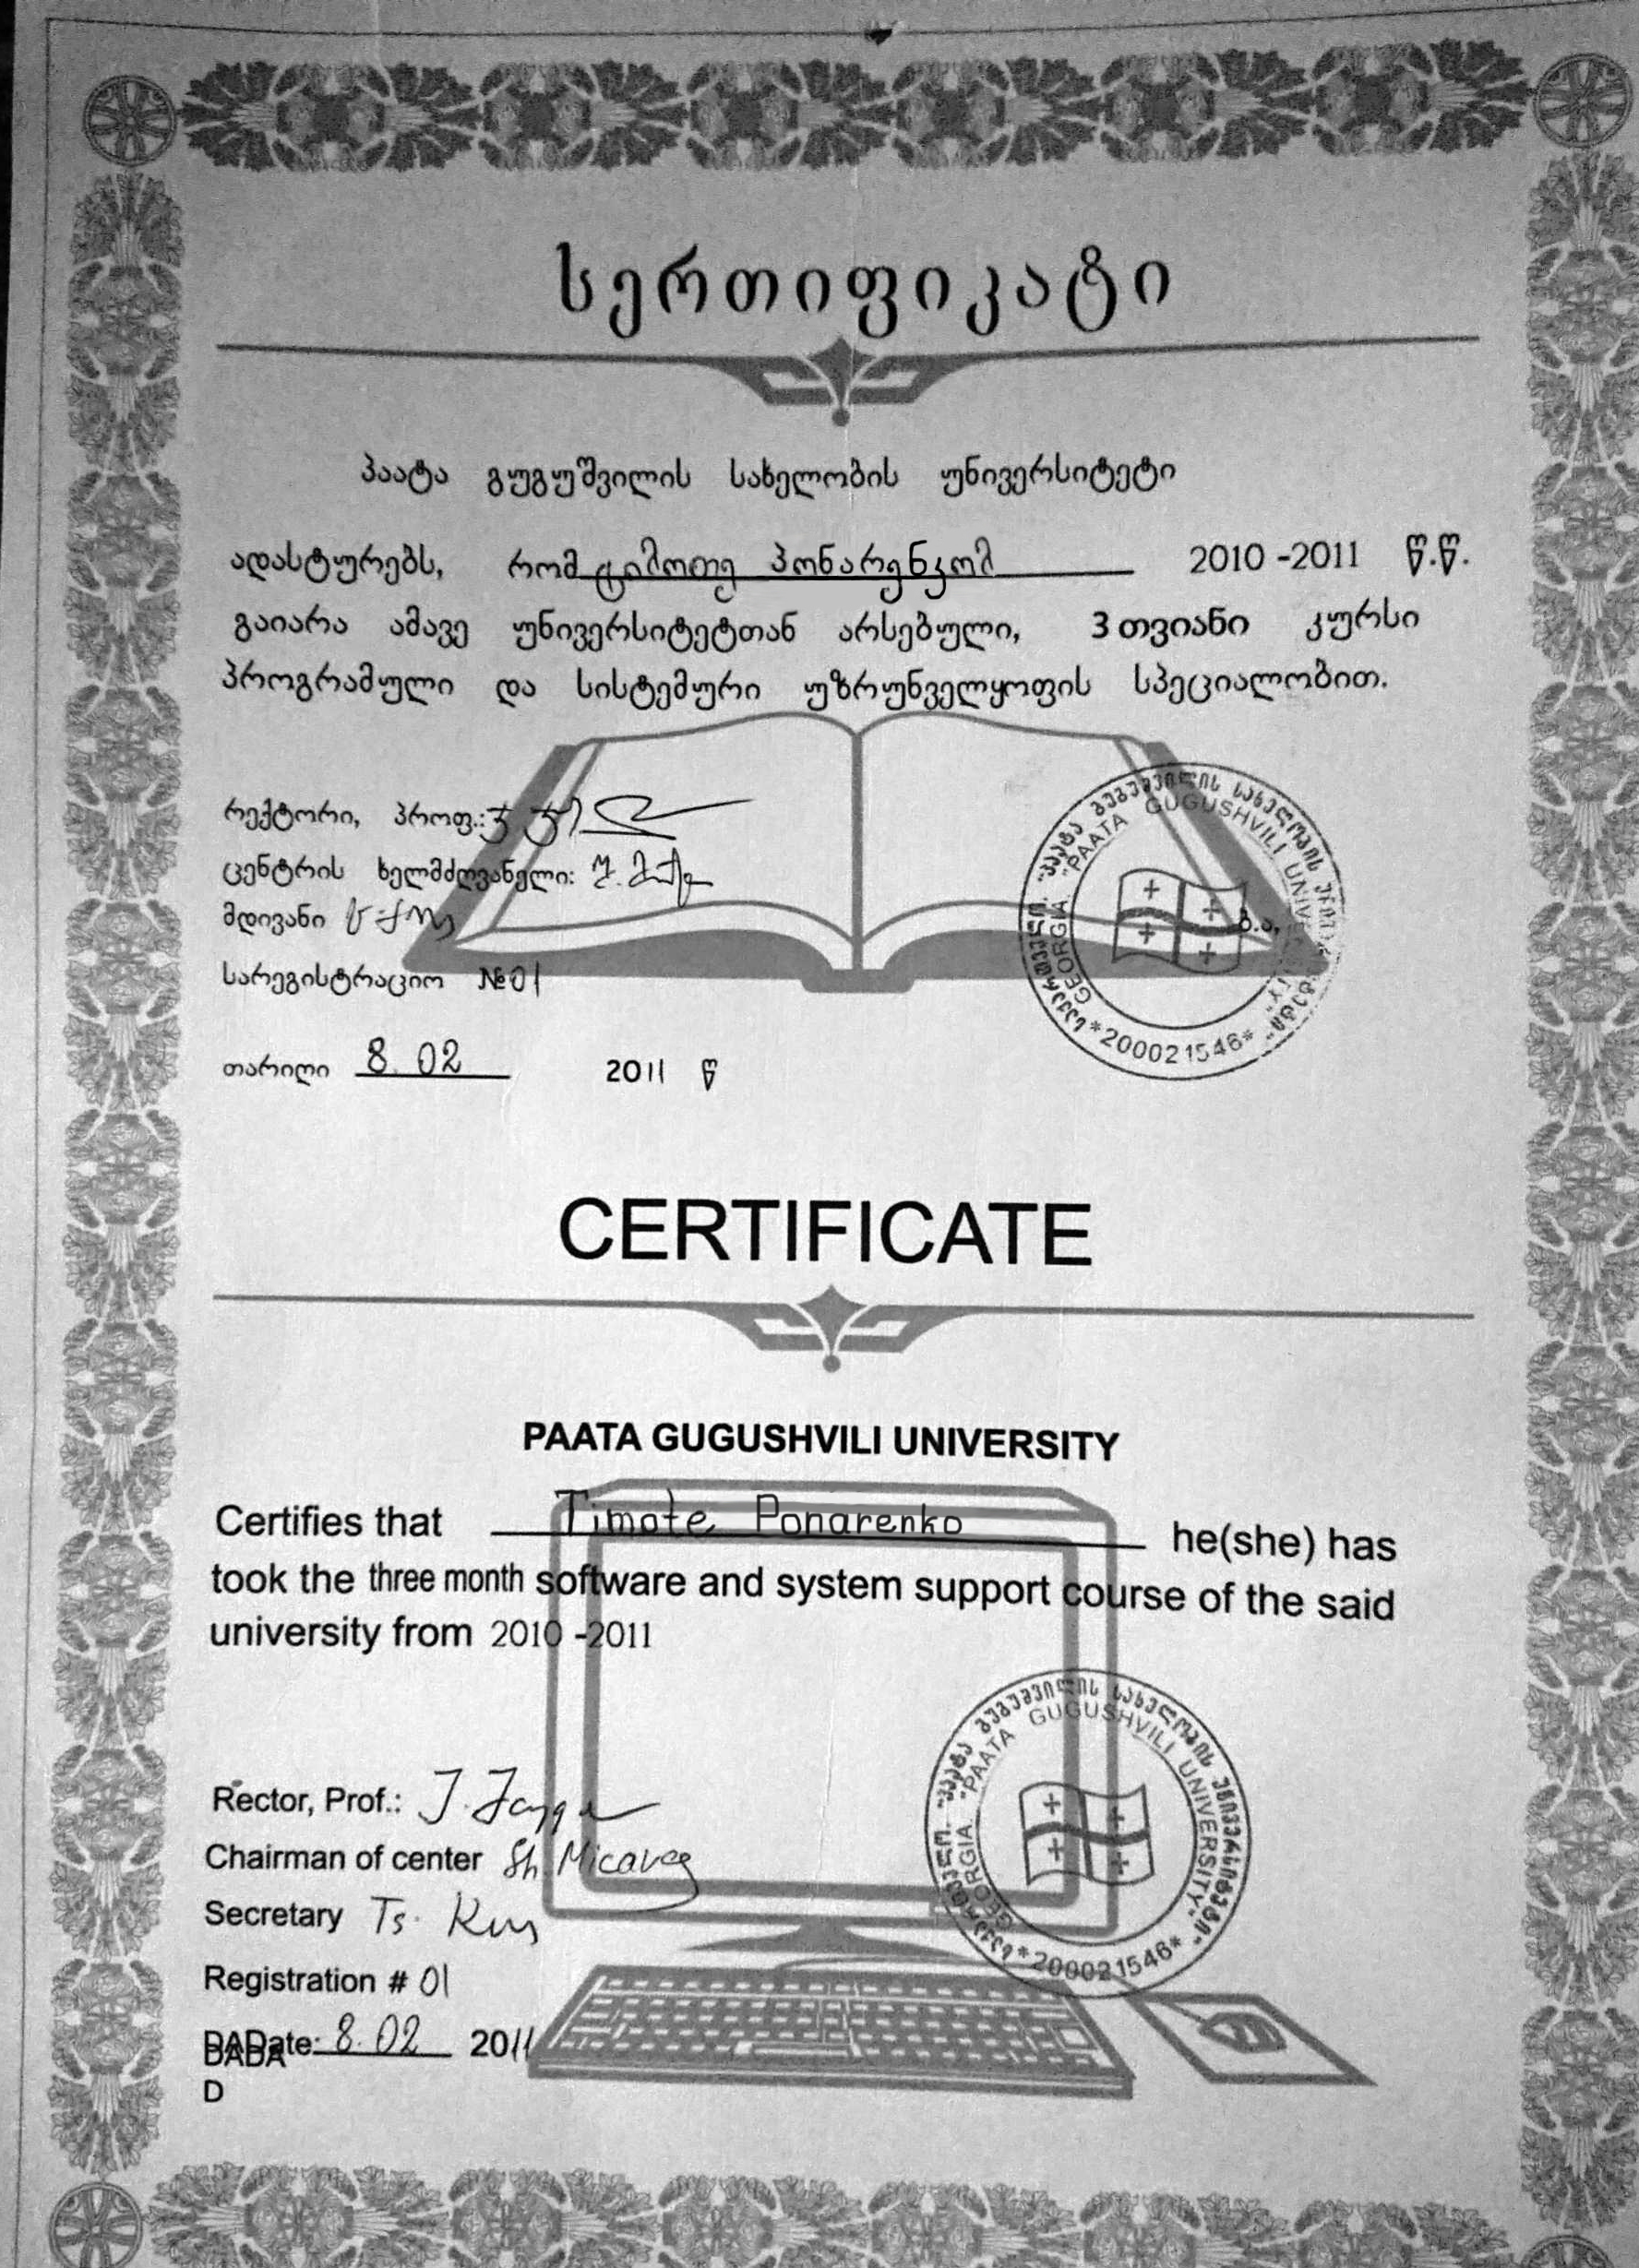 სერთიფიკატი
პაატა გუგუშვილის სახელობის უნივერსიტეტი
ადასტურებს, რომ ტიმოთე პონარენკომ 2010 -2011 წ.წ.
გაიარა ამავე უნივერსიტეტთან არსებული, 3 თვიანი კურსი
პროგრამული და სისტემური უზრუნველყოფის სპეციალობით.
რექტორი, პროფ.:
ცენტრის ხელმძღვანელი:
მდივანი
სარეგისტრაციო №01
თარიღი 8.02 2011 წ
ბ.ა.
საქართველო. "პაატა გუგუშვილის სახელობის უნივერსიტეტი"
GEORGIA. "PAATA GUGUSHVILI UNIVERSITY"
*200021546*
CERTIFICATE
PAATA GUGUSHVILI UNIVERSITY
Certifies that Timote Ponarenko he(she) has
took the three month software and system support course of the said
university from 2010 -2011
Rector, Prof.: J.
Chairman of center Sh.
Secretary Ts.
Registration # 01
DADate: 8.02 2011
DADA
D
საქართველო. "პაატა გუგუშვილის სახელობის უნივერსიტეტი"
GEORGIA. "PAATA GUGUSHVILI UNIVERSITY"
*200021546*